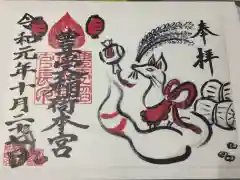 奉拝
豊受稲荷本宮
令和元年十月二